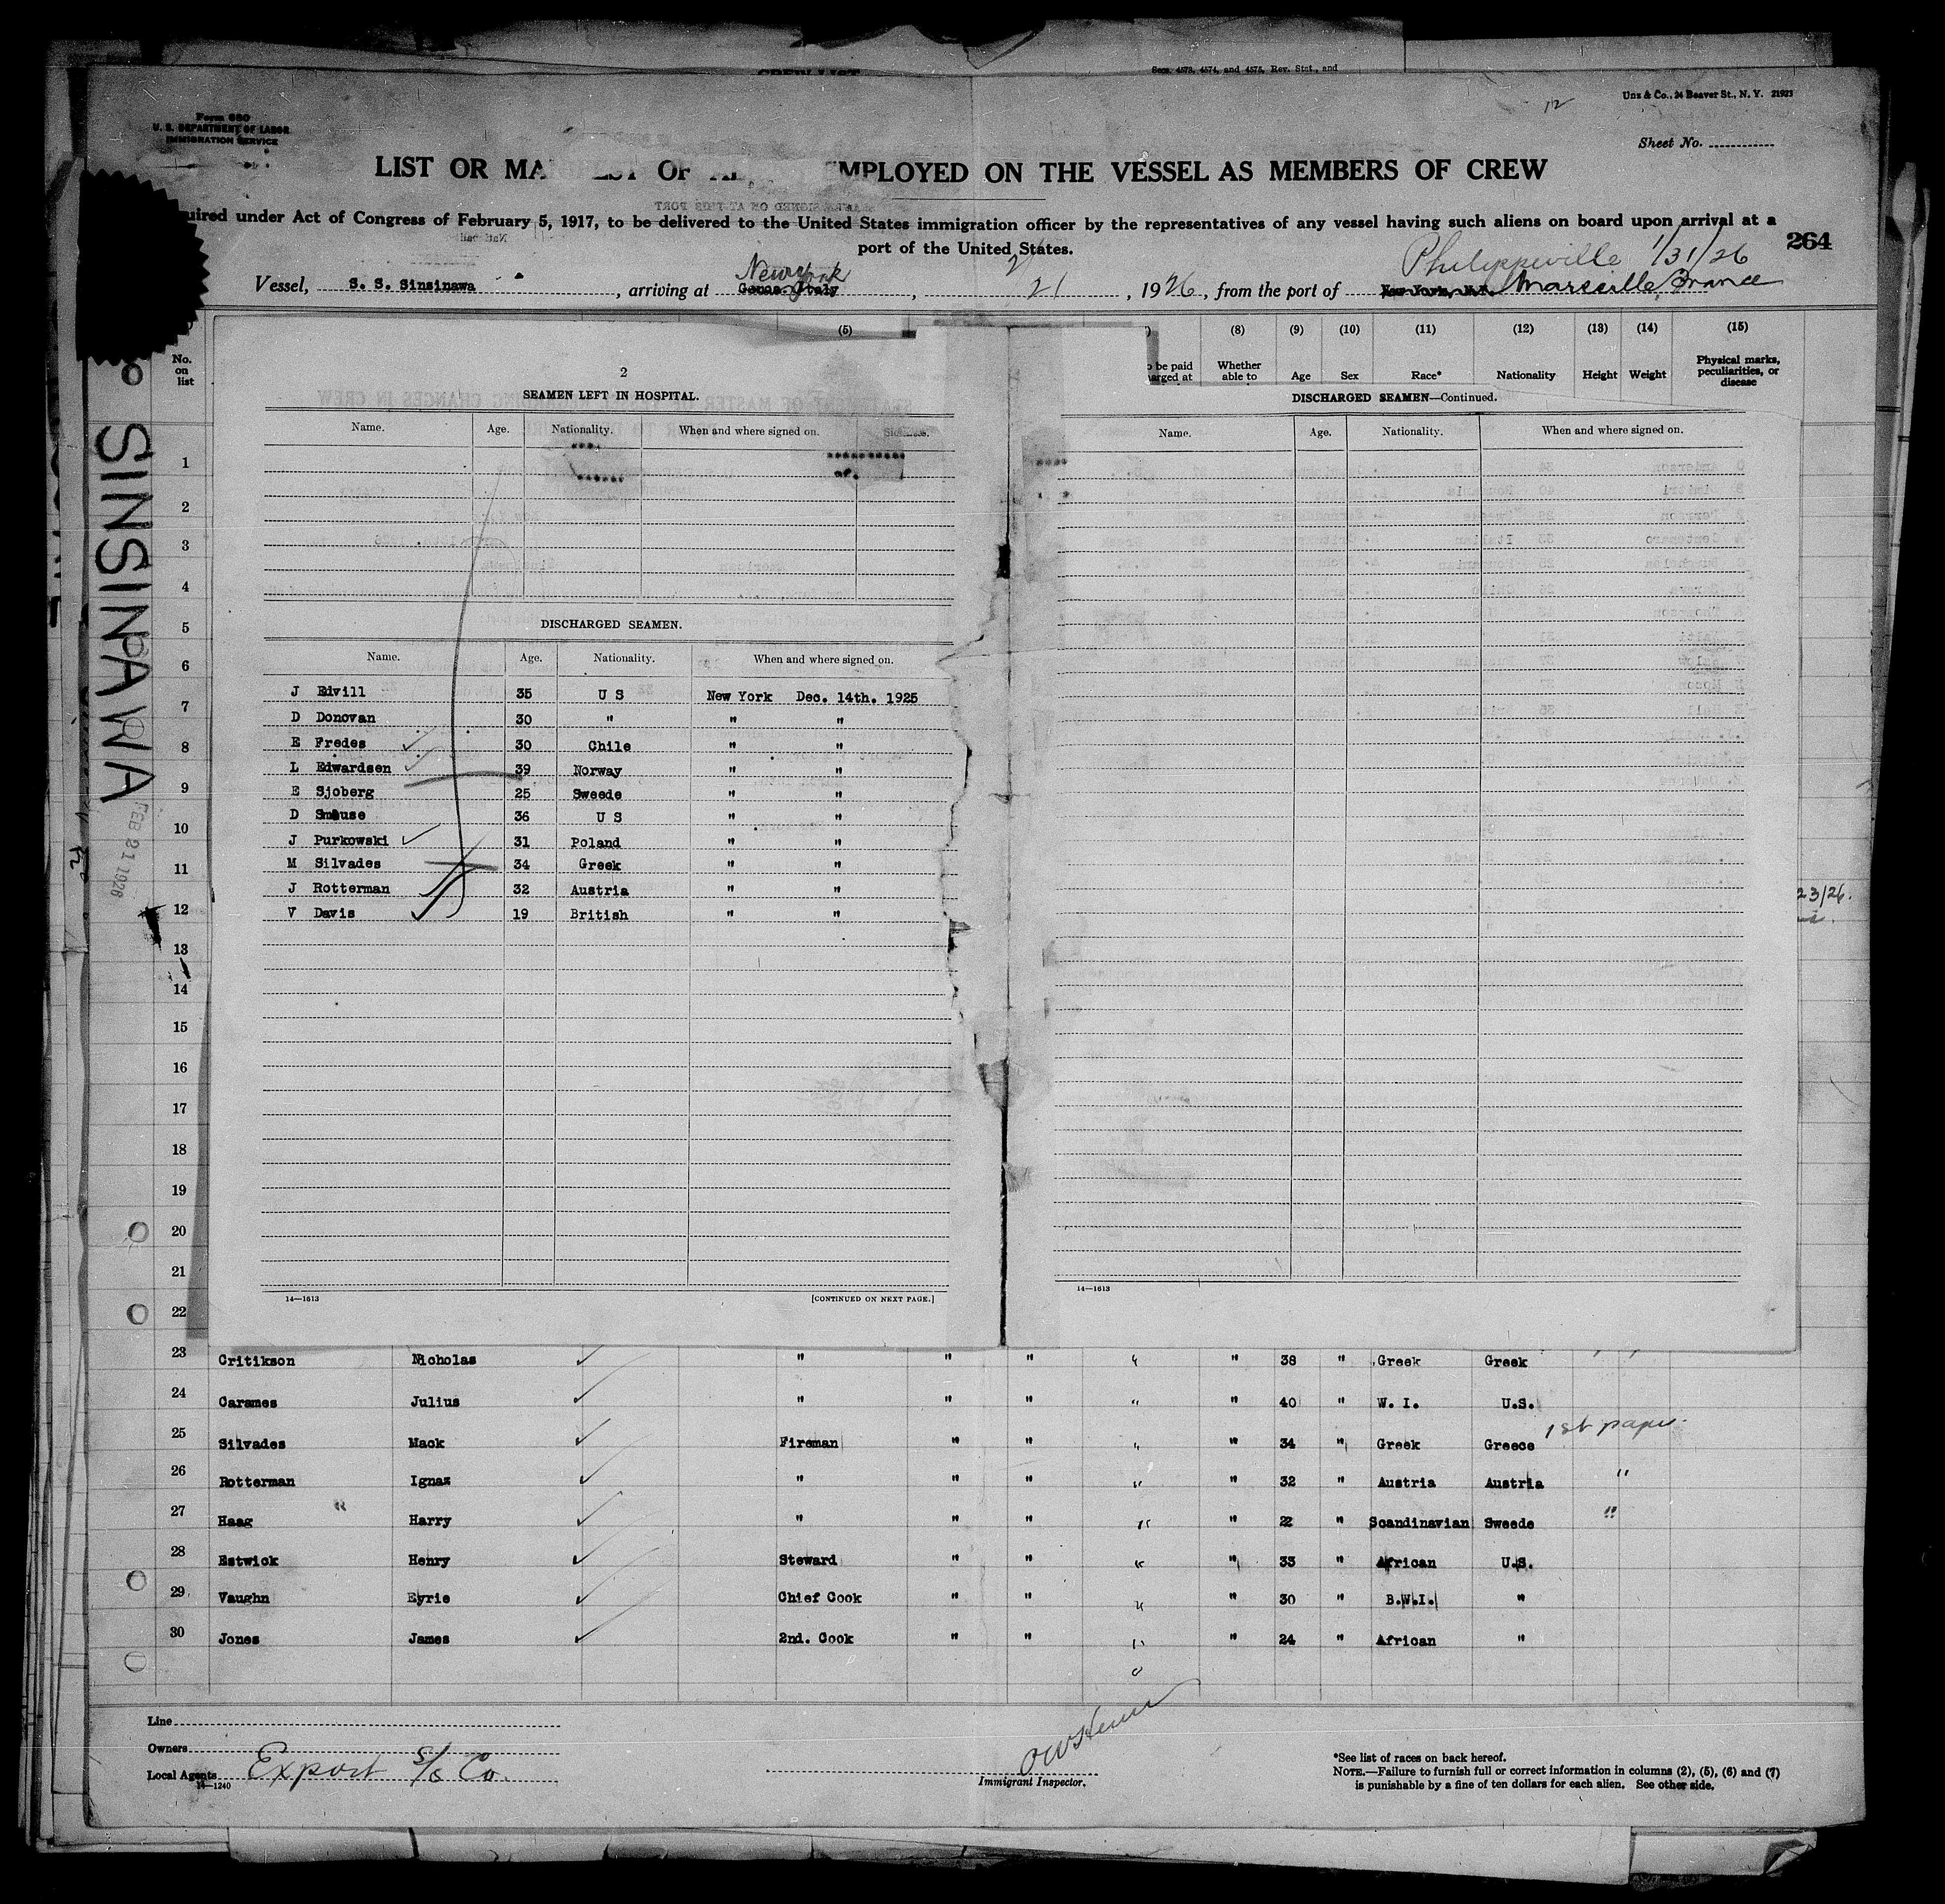 Secs. 4573, 4574, and 4575, Rev. Stat., and
12
Unz & Co., 24 Beaver St., N. Y. 21923
Form 680
U. S. DEPARTMENT OF LABOR
IMMIGRATION SERVICE
Sheet No.
LIST OR MA EST OF AL EMPLOYED ON THE VESSEL AS MEMBERS OF CREW
uired under Act of Congress of February 5, 1917, to be delivered to the United States immigration officer by the representatives of any vessel having such aliens on board upon arrival at a
port of the United States.
264
Philippeville 1/31/26
New York
Vessel, S. S. Sinsinawa, arriving at Genoa Italy, 2/21, 1926, from the port of New York, N.Y. Marseille, France
(5) (8) (9) (10) (11) (12) (13) (14) (15)
No. on list
o be paid arged at
Whether able to
Age Sex Race* Nationality Height Weight
Physical marks, peculiarities, or disease
SINSINAWA
FEB 21 1926
2
SEAMEN LEFT IN HOSPITAL.
Name. Age. Nationality. When and where signed on. Sickness.
DISCHARGED SEAMEN.
Name. Age. Nationality. When and where signed on.
J Edvill 35 U S New York Dec. 14th. 1925
D Donovan 30 " " "
E Fredes 30 Chile " "
L Edwardsen 39 Norway " "
E Sjoberg 25 Sweede " "
D Smouse 36 U S " "
J Purkowski 31 Poland " "
M Silvades 34 Greek " "
J Rotterman 32 Austria " "
V Davis 19 British " "
14—1613 [CONTINUED ON NEXT PAGE.]
DISCHARGED SEAMEN—Continued.
Name. Age. Nationality. When and where signed on.
14—1613
23/26.
1
2
3
4
5
6
7
8
9
10
11
12
13
14
15
16
17
18
19
20
21
22
23 Critikson Nicholas " " " " " 38 " Greek Greek
24 Carames Julius " " " " " 40 " W. I. U.S.
25 Silvades Mack Fireman " " " " 34 " Greek Greece 1st paper
26 Rotterman Ignaz " " " " " 32 " Austria Austria "
27 Haag " Harry " " " " " 22 " Scandinavian Sweede "
28 Estwick Henry Steward " " " " 33 " African U.S.
29 Vaughn Eyrie Chief Cook " " " " 30 " B.W.I. "
30 Jones James 2nd. Cook " " " " 24 " African "
Line
Owners
Local Agents Export S/S Co.
14—1240
Immigrant Inspector.
*See list of races on back hereof.
NOTE.—Failure to furnish full or correct information in columns (2), (5), (6) and (7)
is punishable by a fine of ten dollars for each alien. See other side.